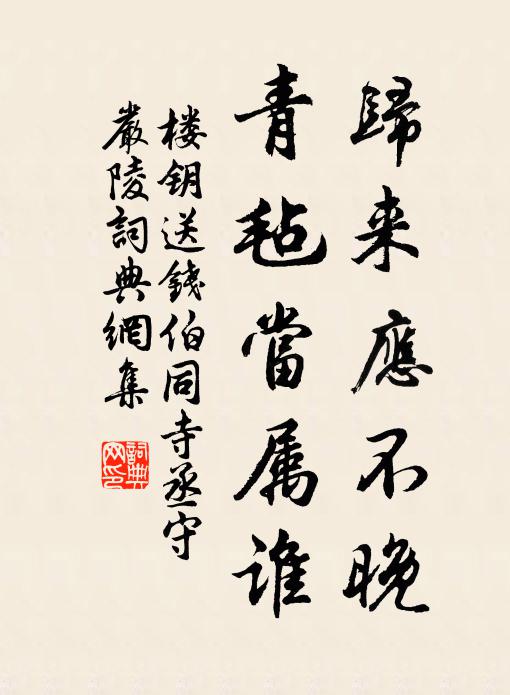 歸来應不晚
青毡當属誰
楼钥送錢伯同寺丞守
嚴陵詞典網集
詞典
网印